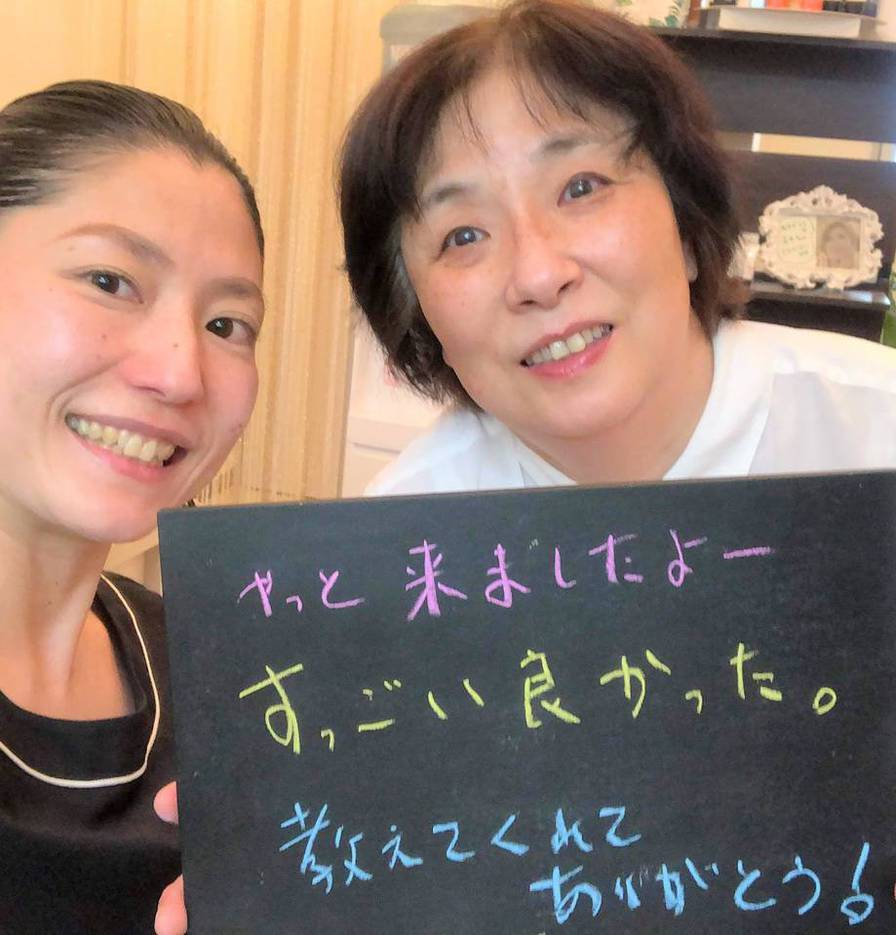 やっと 来ましたよー
すっごい 良かった。
教えてくれて
ありがとう!